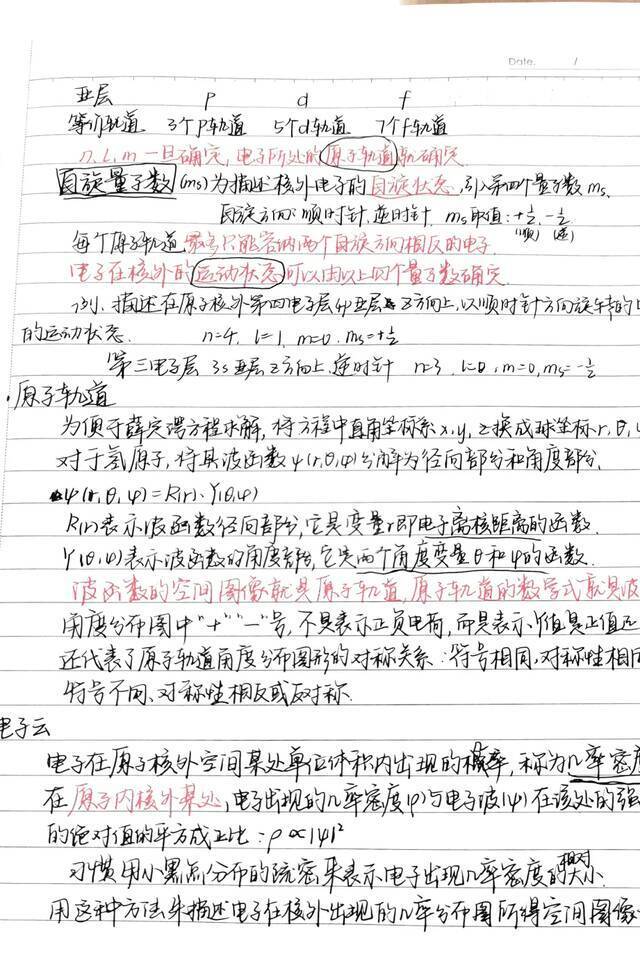 Date. /
亚层 p d f
等价轨道 3个p轨道 5个d轨道 7个f轨道
n、l、m 一旦确定,电子所处的原子轨道就确定.
自旋量子数(ms)为描述核外电子的自旋状态,引入第四个量子数ms,
自旋方向:顺时针,逆时针. ms取值:+½,-½
(顺) (逆)
每个原子轨道最多只能容纳两个自旋方向相反的电子
电子在核外的运动状态可以由以上四个量子数确定.
例.描述在原子核外第四电子层4p亚层z方向上,以顺时针方向旋转的
的运动状态. n=4, l=1, m=0, ms=+½
第三电子层 3s亚层z方向上,逆时针 n=3, l=0, m=0, ms=-½
·原子轨道
为便于薛定谔方程求解,将方程中直角坐标系x,y,z换成球坐标r,θ,
对于氢原子,将其波函数ψ(r,θ,φ)分解为径向部分和角度部分.
ψ(r,θ,φ)=R(r)·Y(θ,φ)
R(r)表示波函数径向部分,它是变量r即电子离核距离的函数.
Y(θ,φ)表示波函数的角度部分,它是两个角度变量θ和φ的函数.
波函数的空间图像就是原子轨道,原子轨道的数学式就是波
角度分布图中"+""-"号,不是表示正负电荷,而是表示Y值是正值还
还代表了原子轨道角度分布图形的对称关系:符号相同,对称性相同
符号不同、对称性相反或反对称.
电子云
电子在原子核外空间某处单位体积内出现的概率,称为几率密度
在原子内核外某处,电子出现的几率密度(ρ)与电子波(ψ)在该处的强
的绝对值的平方成正比:ρ∝|ψ|²
习惯用小黑点分布的疏密来表示电子出现几率密度的相对大小.
用这种方法来描述电子在核外出现的几率分布图所得空间图像